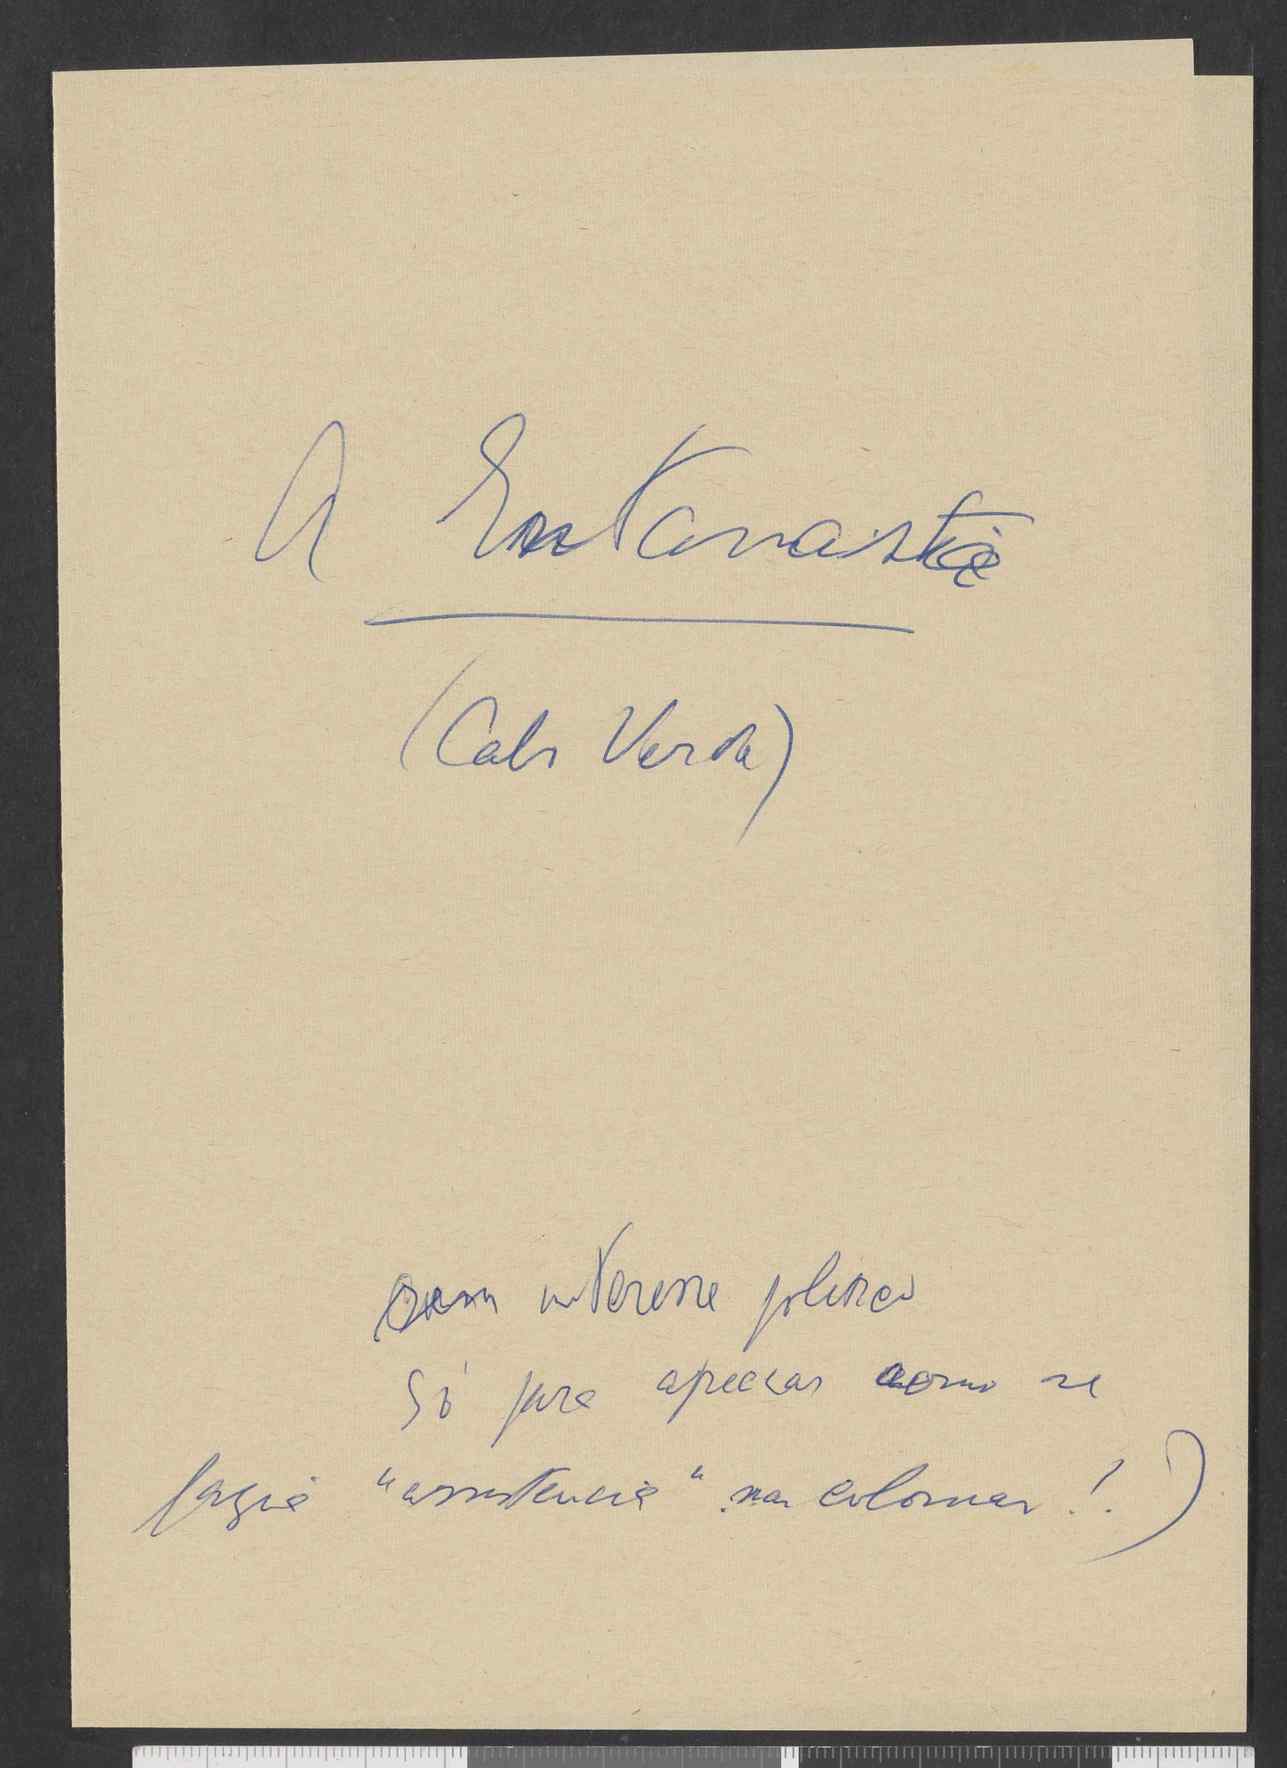 A Eutanasia
(Cabo Verde)
(sem interesse politico
Só para apreciar como se
fazia "assistencia" nas colonias!)